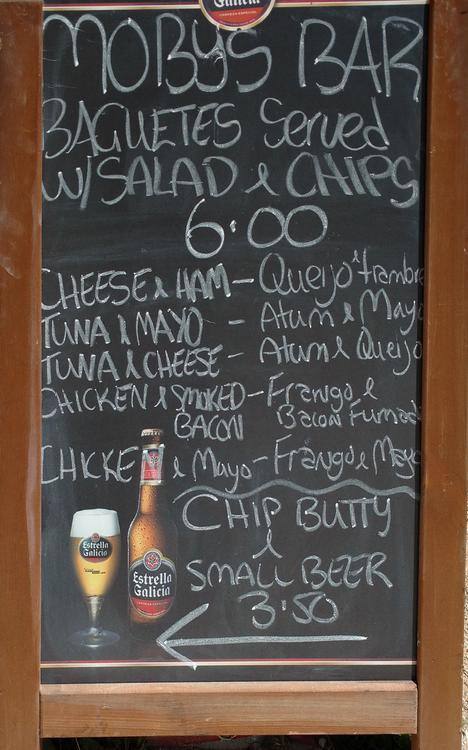 Galicia
MOBYS BAR
BAGUETES Served
W/ SALAD & CHIPS
6.00
CHEESE & HAM - Queijo & fiambre
TUNA & MAYO - Atum & Mayo
TUNA & CHEESE - Atum & Queijo
CHICKEN & SMOKED - Frango &
BACON Bacon Fumado
CHICKE & Mayo - Frango & Mayo
CHIP BUTTY
&
SMALL BEER
3.50
Estrella
Galicia
Estrella
Galicia